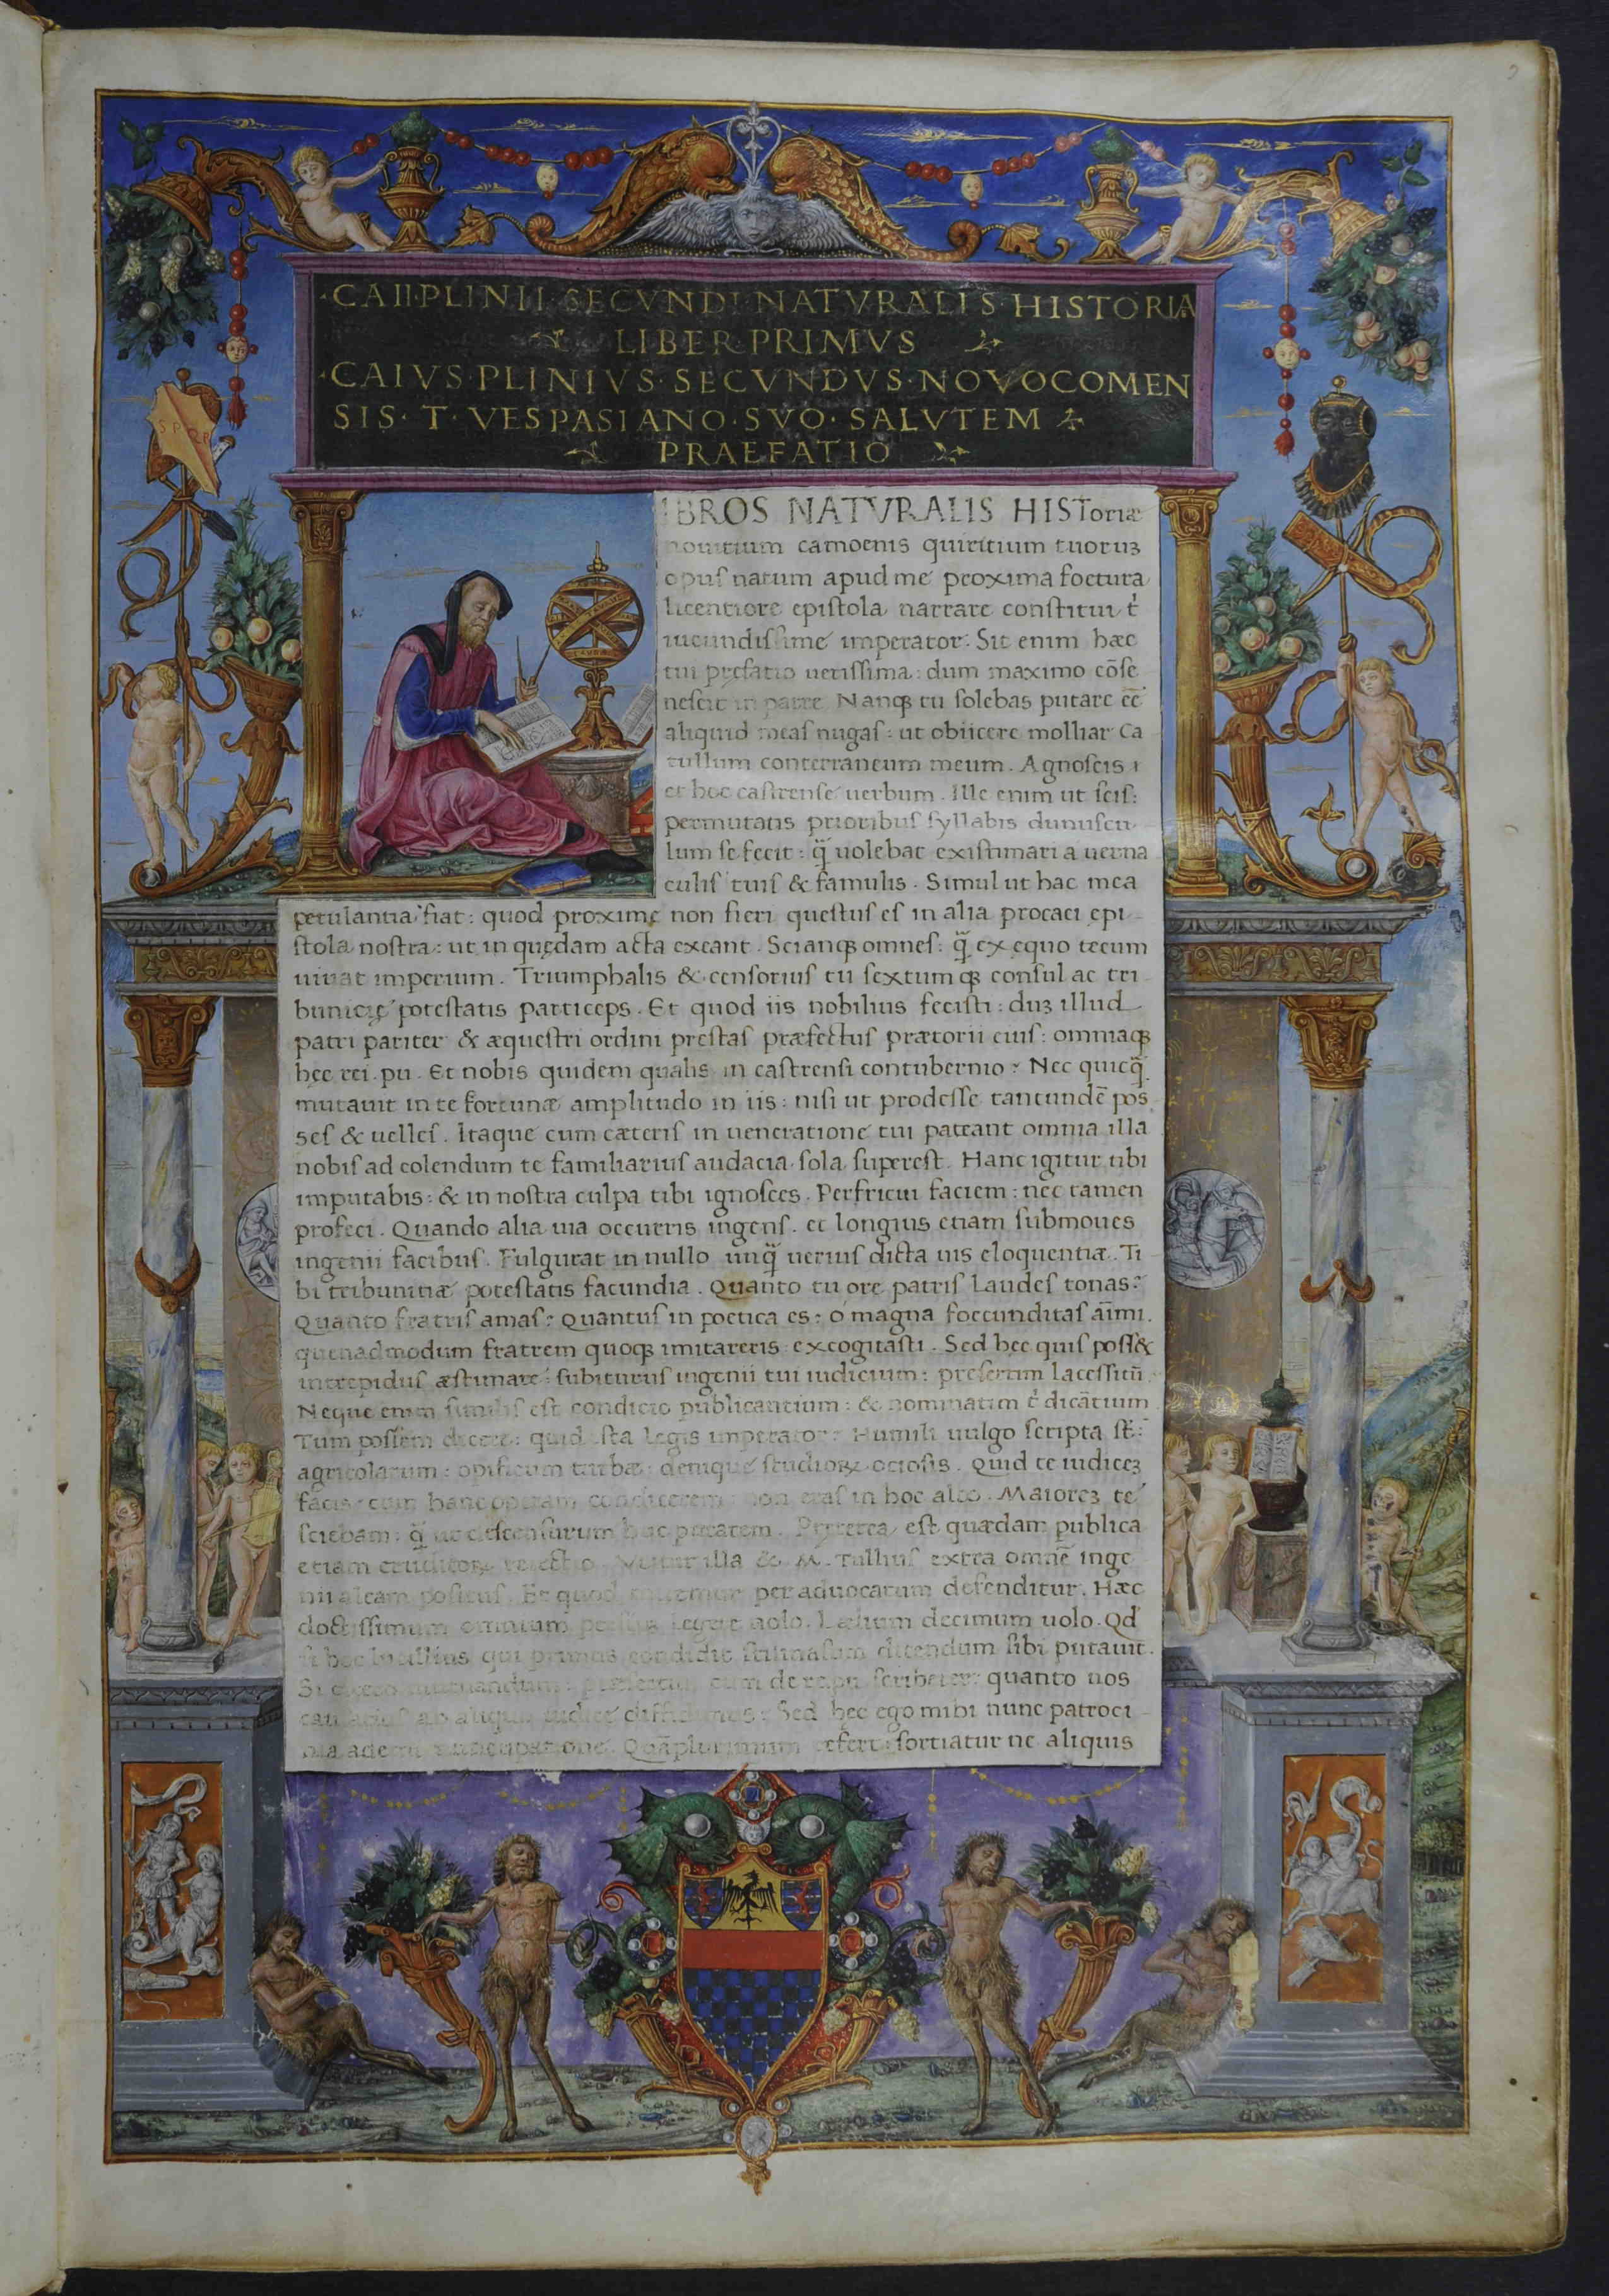 ·CAII·PLINII·SECVNDI·NATVRALIS·HISTORIA
LIBER·PRIMVS
·CAIVS·PLINIVS·SECVNDVS·NOVOCOMEN
SIS·T·VESPASIANO·SVO·SALVTEM
PRAEFATIO
SPQR
IBROS NATVRALIS HISToriæ
nouitium camoenis quiritium tuoruꝫ
opuſ natum apud me proxima foetura
licentiore epiſtola narrare conſtitui t̓
iucundiſſime imperator. Sit enim hæc
tui prefatio ueriſſima: dum maximo cõſe
neſcit in patre. Nanqꝫ tu ſolebas putare eē
aliquid meaſ nugaſ: ut obiicere molliar Ca
tullum conterraneum meum. Agnoſcis
et hoc caſtrenſe uerbum. Ille enim ut ſciſ:
permutatis prioribuſ ſyllabis duriuſcu
lum ſe fecit: q̃ uolebat exiſtimari a uerna
culiſ tuiſ & famulis. Simul ut hac mea
petulantia fiat: quod proxime non fieri queſtuſ eſ in alia procaci epi
ſtola noſtra: ut in quędam acta exeant. Scianqꝫ omneſ: q̃ ex ęquo tecum
uiuat imperium. Triumphalis & cenſoriuſ tu ſextumqꝫ conſul ac tri
bunicię poteſtatis particeps. Et quod iis nobiliuſ feciſti: duꝫ illud
patri pariter & æqueſtri ordini preſtaſ præfectuſ prætorii eiuſ: omniaqꝫ
hec rei. pu. Et nobis quidem qualis in caſtrenſi contubernio? Nec quicq̃
mutauit in te fortunæ amplitudo in iis: niſi ut prodeſſe tantundē poſ
ſeſ & uelleſ. Itaque cum cæteriſ in ueneratione tui pateant omnia illa
nobiſ ad colendum te familiariuſ audacia ſola ſupereſt. Hanc igitur tibi
imputabis: & in noſtra culpa tibi ignoſces. Perfricui faciem: nec tamen
profeci. Quando alia uia occurris ingenſ. et longius etiam ſubmoues
ingenii facibuſ. Fulgurat in nullo unq̃ ueriuſ dicta uis eloquentiæ. Ti
bi tribunitiæ poteſtatis facundia. Quanto tu ore patriſ laudeſ tonas?
Quanto fratriſ amas? Quantuſ in poetica es? O magna foecunditaſ aĩmi.
quenadmodum fratrem quoqꝫ imitareris excogitaſti. Sed hec quiſ poſſ&
intrepiduſ æſtimare? ſubituruſ ingenii tui iudicium: preſertim laceſſitũ.
Neque enim ſimiliſ eſt condicio publicantium: & nominatim t̓ dicãtium
Tum poſſem dicere: quid iſta legis imperator? Humili uulgo ſcripta ſt̄:
agricolarum: opificum turbæ: denique ſtudioꝝ ocioſis. Quid te iudiceꝫ
facis? cum hanc operam condicerem: non eraſ in hoc albo. Maioreꝫ te
ſciebam: q̃ ut deſcenſurum huc putarem. Preterea eſt quædam publica
etiam eruditoꝝ reiectio. Vtitur illa & M. Tulliuſ extra omnē inge
nii aleam poſituſ. Et quod miremur per aduocatum defenditur. Hæc
doctiſſimum omnium perſium legere nolo. Lælium decimum uolo. Qd̓
ſi hoc lucillius qui primus condidit ſtili naſum dicendum ſibi putauit.
Si cicero mutuandum: præſertim cum de re pu. ſcriberet: quanto nos
cauſatiuſ ab aliquo iudice diffidimus? Sed hęc ego mihi nunc patroci
nia ademi nuncupatione. Quãplurimum refert: ſortiatur ne aliquis